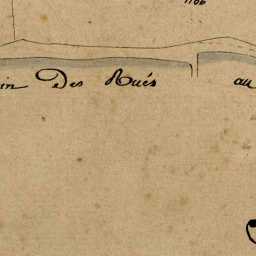 in Des Rués au